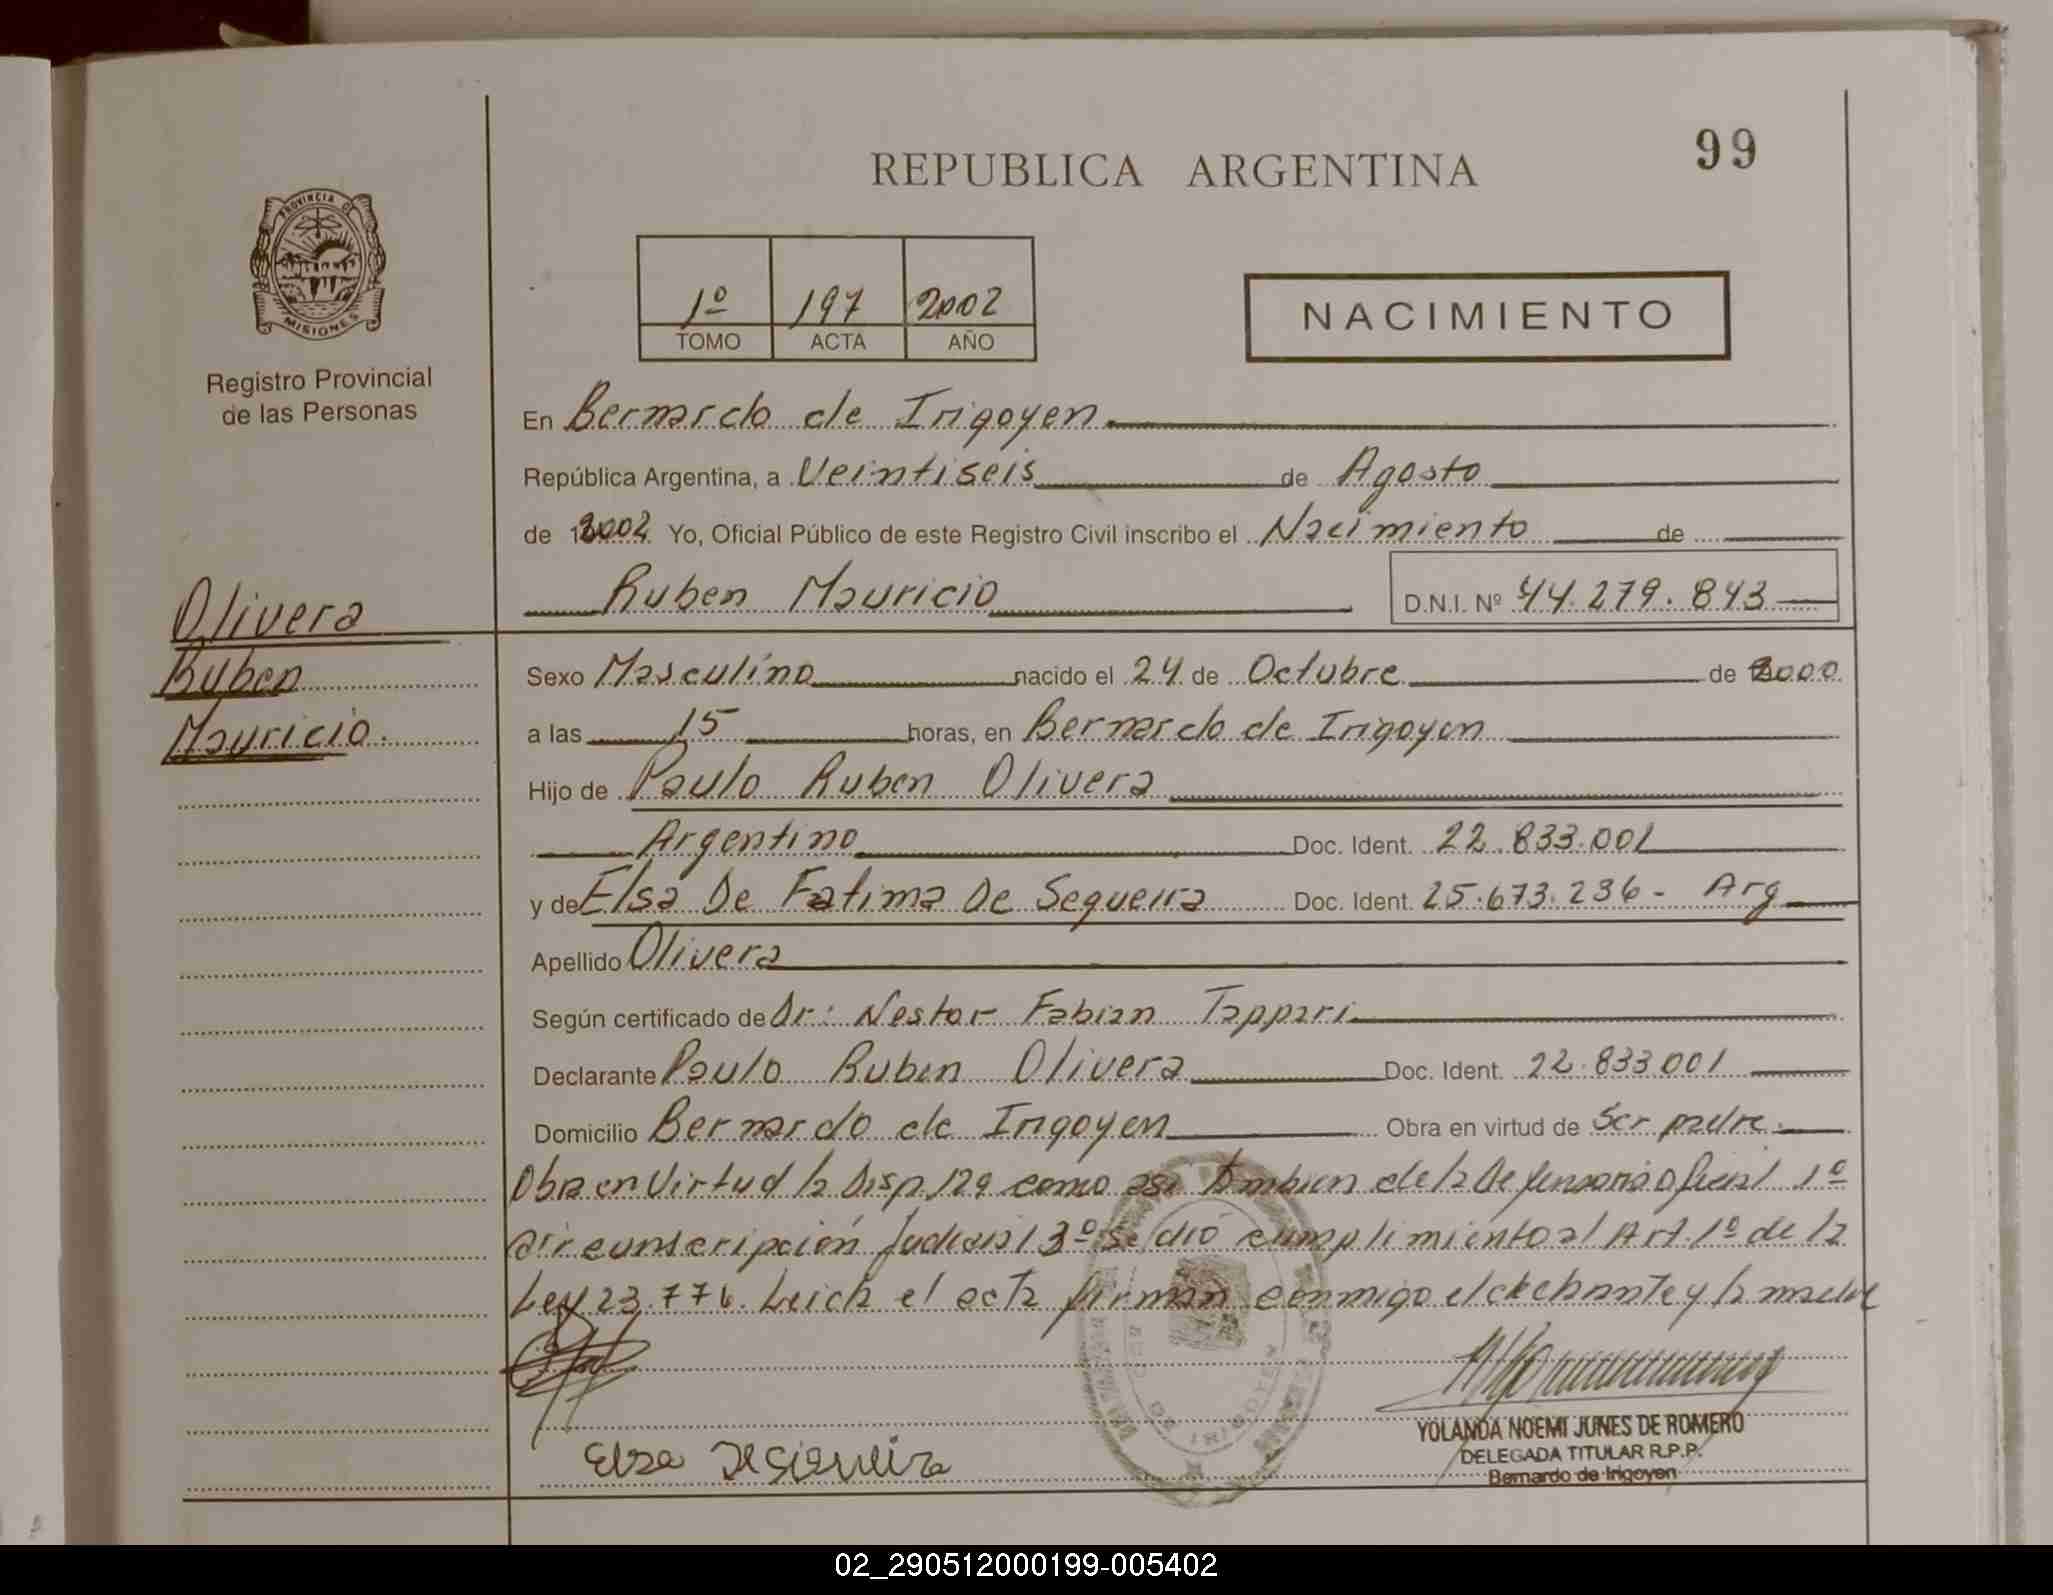 REPUBLICA ARGENTINA
99
PROVINCIA DE
MISIONES
Registro Provincial
de las Personas
1º 197 2002
TOMO ACTA AÑO
NACIMIENTO
En Bernardo de Irigoyen
República Argentina, a Veintiseis de Agosto
de 2002 Yo, Oficial Público de este Registro Civil inscribo el Nacimiento de
Ruben Mauricio D.N.I. Nº 44.279.843
Olivera
Ruben
Mauricio.
Sexo Masculino nacido el 24 de Octubre de 2000
a las 15 horas, en Bernardo de Irigoyen
Hijo de Paulo Ruben Olivera
Argentino Doc. Ident. 22.833.001
y de Elsa De Fatima De Sequeira Doc. Ident. 25.673.236- Arg
Apellido Olivera
Según certificado de Dr: Nestor Fabian Tappari
Declarante Paulo Ruben Olivera Doc. Ident. 22.833001
Domicilio Bernardo de Irigoyen Obra en virtud de Ser padre.
Obra en Virtud la Disp 129 como asi tambien de la Defensoria Oficial 1º
circunscripción Judicial 3º se dió cumplimiento al Art. 1º de la
Ley 23.776. Leida el acta firman conmigo el declarante y la madre
Elsa
YOLANDA NOEMI JUNES DE ROMERO
DELEGADA TITULAR R.P.P.
Bernardo de Irigoyen
02_290512000199-005402